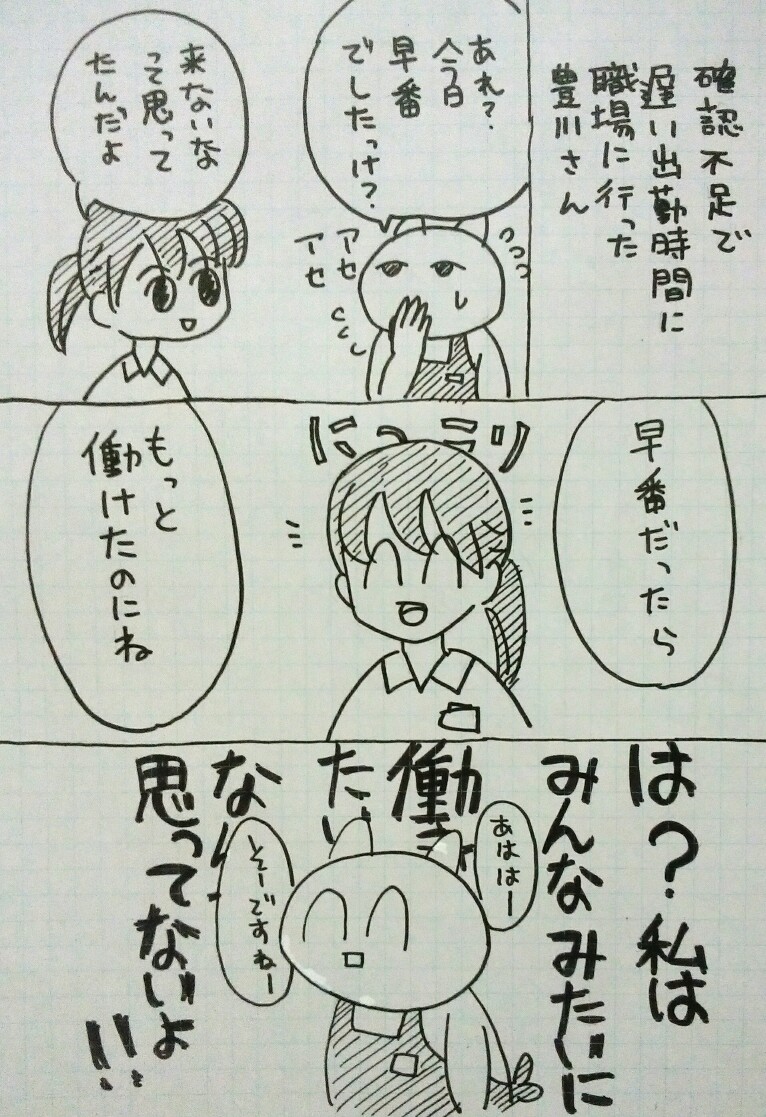 確認不足で
遅い出勤時間に
職場に行った
豊川さん
あれ？
今日
早番
でしたっけ？
アセ
アセ
来ないな
って思って
たんだよ
早番だったら
にっこり
もっと
働けたのにね
は？私は
みんなみたいに
働き
たい
なん
思ってないよ
!!
あはは―
そーですねー